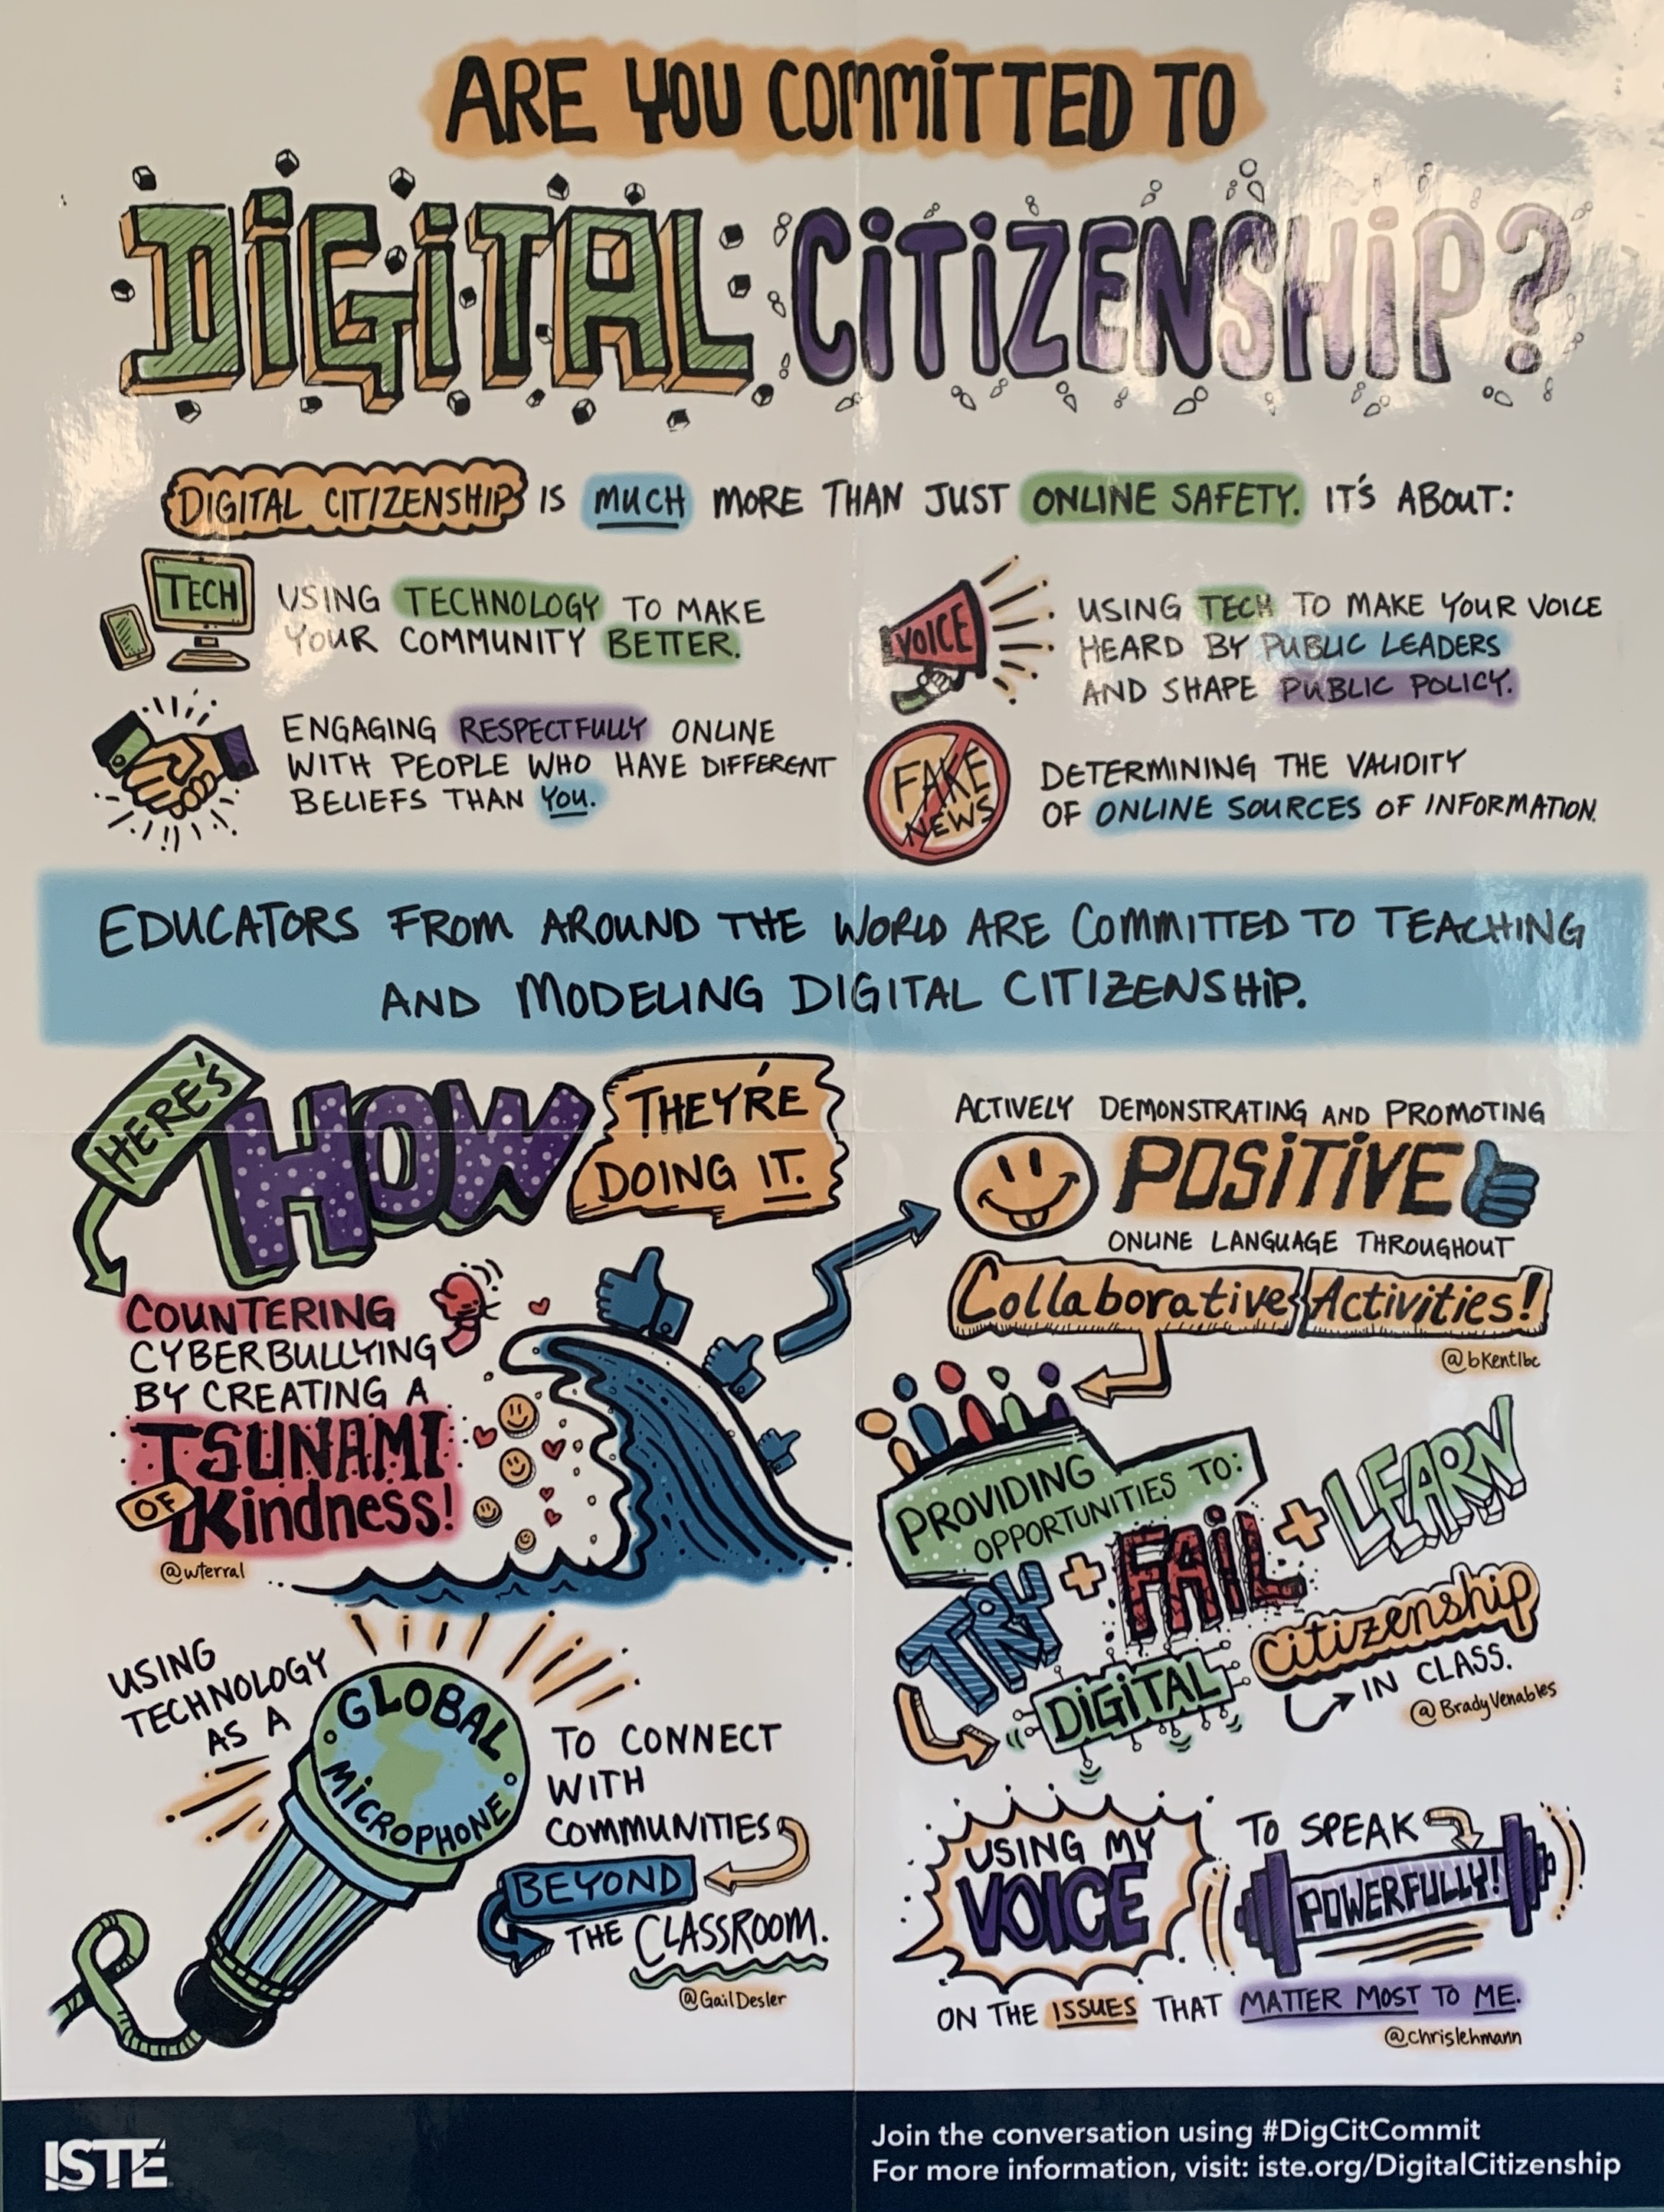 ARE YOU COMMITTED TO
DIGITAL CITIZENSHIP?
DIGITAL CITIZENSHIP IS MUCH MORE THAN JUST ONLINE SAFETY. IT'S ABOUT:
TECH
USING TECHNOLOGY TO MAKE
YOUR COMMUNITY BETTER.
VOICE
USING TECH TO MAKE YOUR VOICE
HEARD BY PUBLIC LEADERS
AND SHAPE PUBLIC POLICY.
ENGAGING RESPECTFULLY ONLINE
WITH PEOPLE WHO HAVE DIFFERENT
BELIEFS THAN YOU.
FAKE
NEWS
DETERMINING THE VALIDITY
OF ONLINE SOURCES OF INFORMATION.
EDUCATORS FROM AROUND THE WORLD ARE COMMITTED TO TEACHING
AND MODELING DIGITAL CITIZENSHIP.
HERE'S
HOW
THEY'RE
DOING IT.
COUNTERING
CYBERBULLYING
BY CREATING A
TSUNAMI
OF Kindness!
@wterral
ACTIVELY DEMONSTRATING AND PROMOTING
POSITIVE
ONLINE LANGUAGE THROUGHOUT
Collaborative Activities!
@bKentlbc
PROVIDING
OPPORTUNITIES TO:
TRY + FAIL + LEARN
DIGITAL
citizenship
IN CLASS.
@BradyVenables
USING
TECHNOLOGY
AS A
GLOBAL
MICROPHONE
TO CONNECT
WITH
COMMUNITIES
BEYOND
THE CLASSROOM.
@GailDesler
USING MY
VOICE
TO SPEAK
POWERFULLY!
ON THE ISSUES THAT MATTER MOST TO ME.
@chrislehmann
ISTE
Join the conversation using #DigCitCommit
For more information, visit: iste.org/DigitalCitizenship